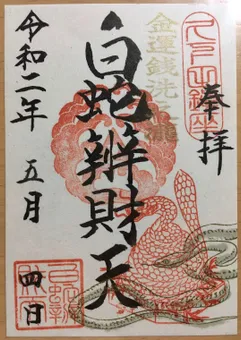 奉拝
金運銭洗
白蛇辨財天
令和二年
五月
四日